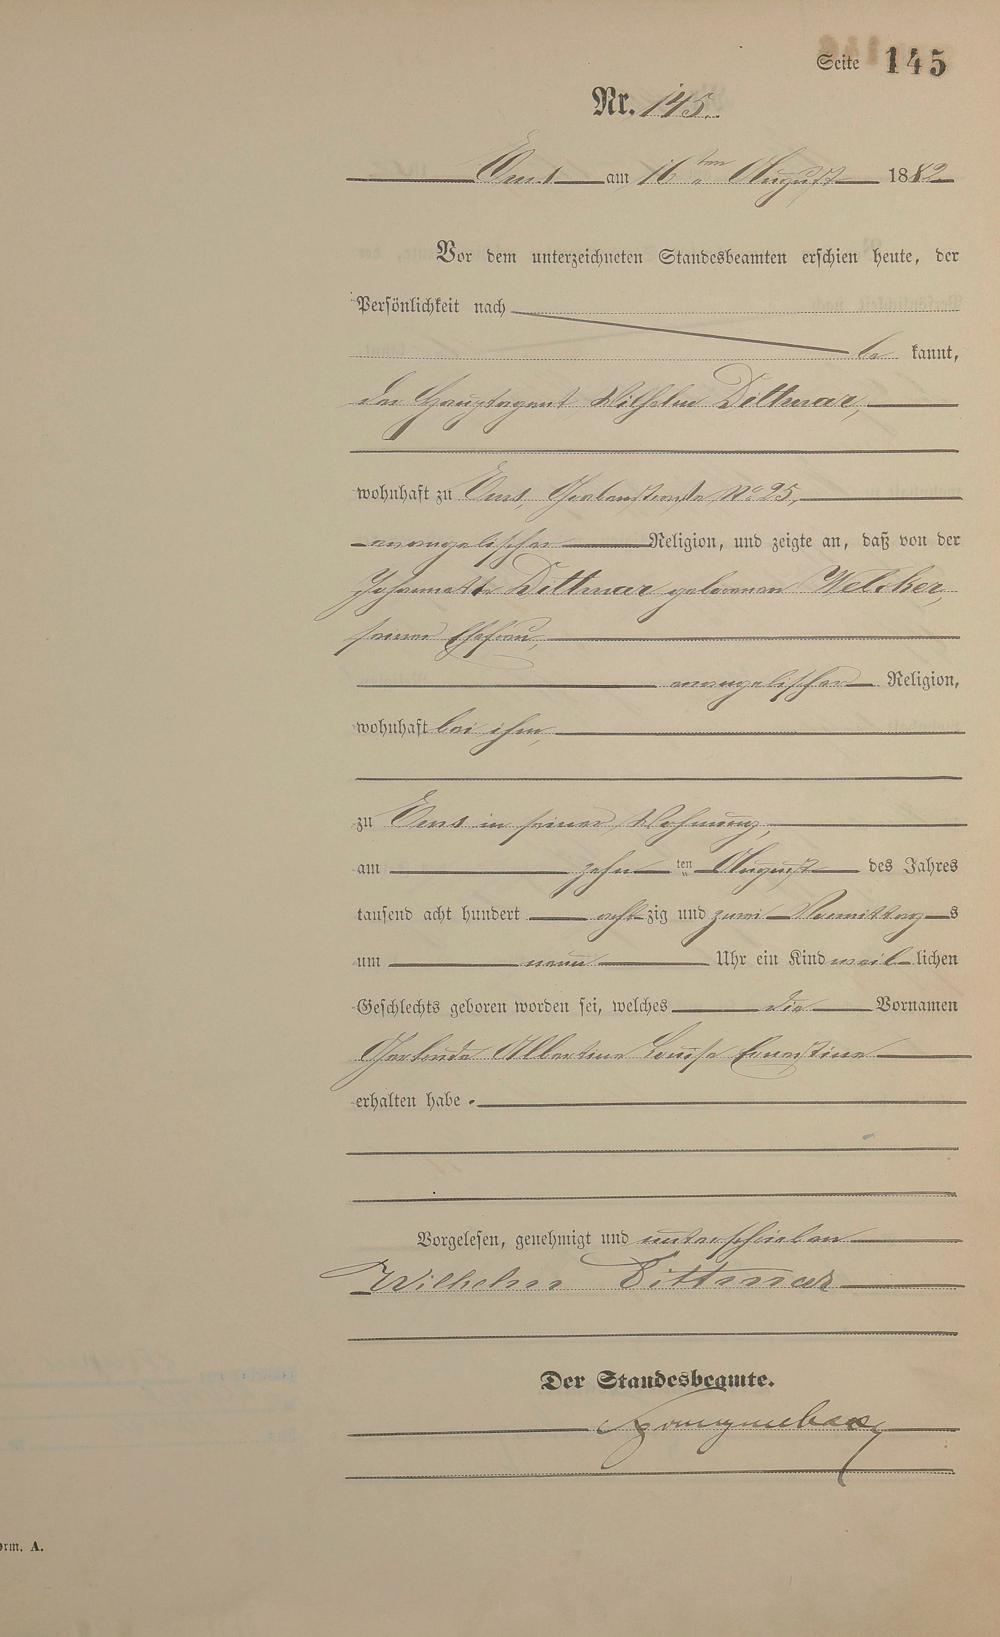 Seite 145
Nr. 145.
Ems am 16 ten August 1882
Vor dem unterzeichneten Standesbeamten erschien heute, der
Persönlichkeit nach
be kannt,
der Hauptagent Wilhelm Dittmar,
wohnhaft zu Ems, No 25,
evangelischer Religion, und zeigte an, daß von der
Johannette Dittmar geborenen Welcker,
seiner Ehefrau,
evangelischer Religion,
wohnhaft bei ihm,
zu Ems in seiner Wohnung,
am zehn ten August des Jahres
tausend acht hundert acht zig und zwei Vormittag s
um neun Uhr ein Kind weib lichen
Geschlechts geboren worden sei, welches die Vornamen
Gertrude Albertine Louise Ernestine
erhalten habe.
Vorgelesen, genehmigt und unterschrieben
Wilhelm Dittmar
Der Standesbeamte.
orm. A.